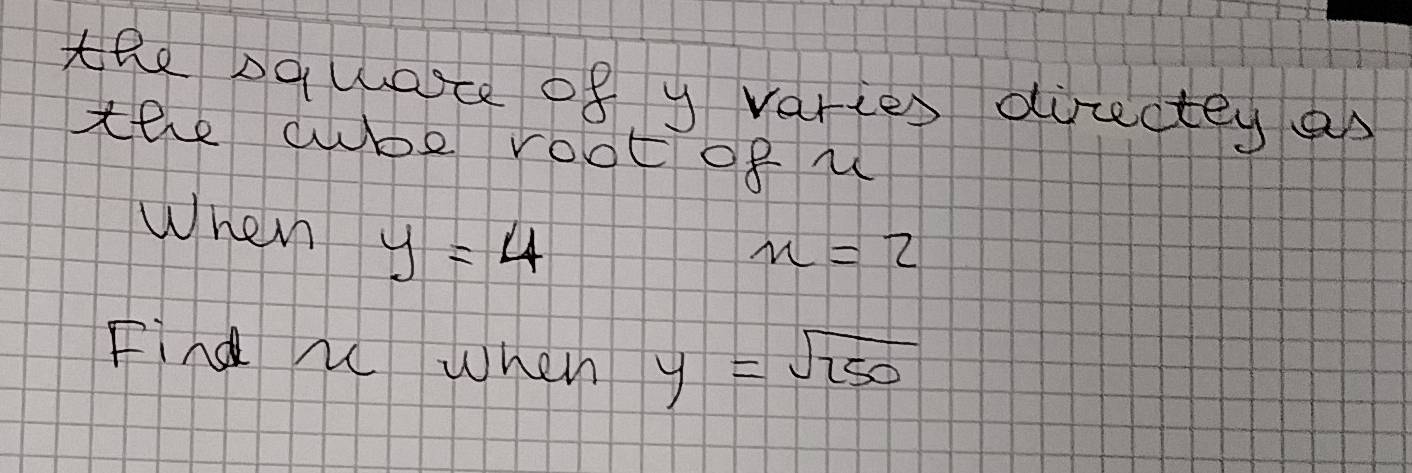 the square of y varies directly as
the cube root of x
When y = 4 x = 2
Find x when y = √250